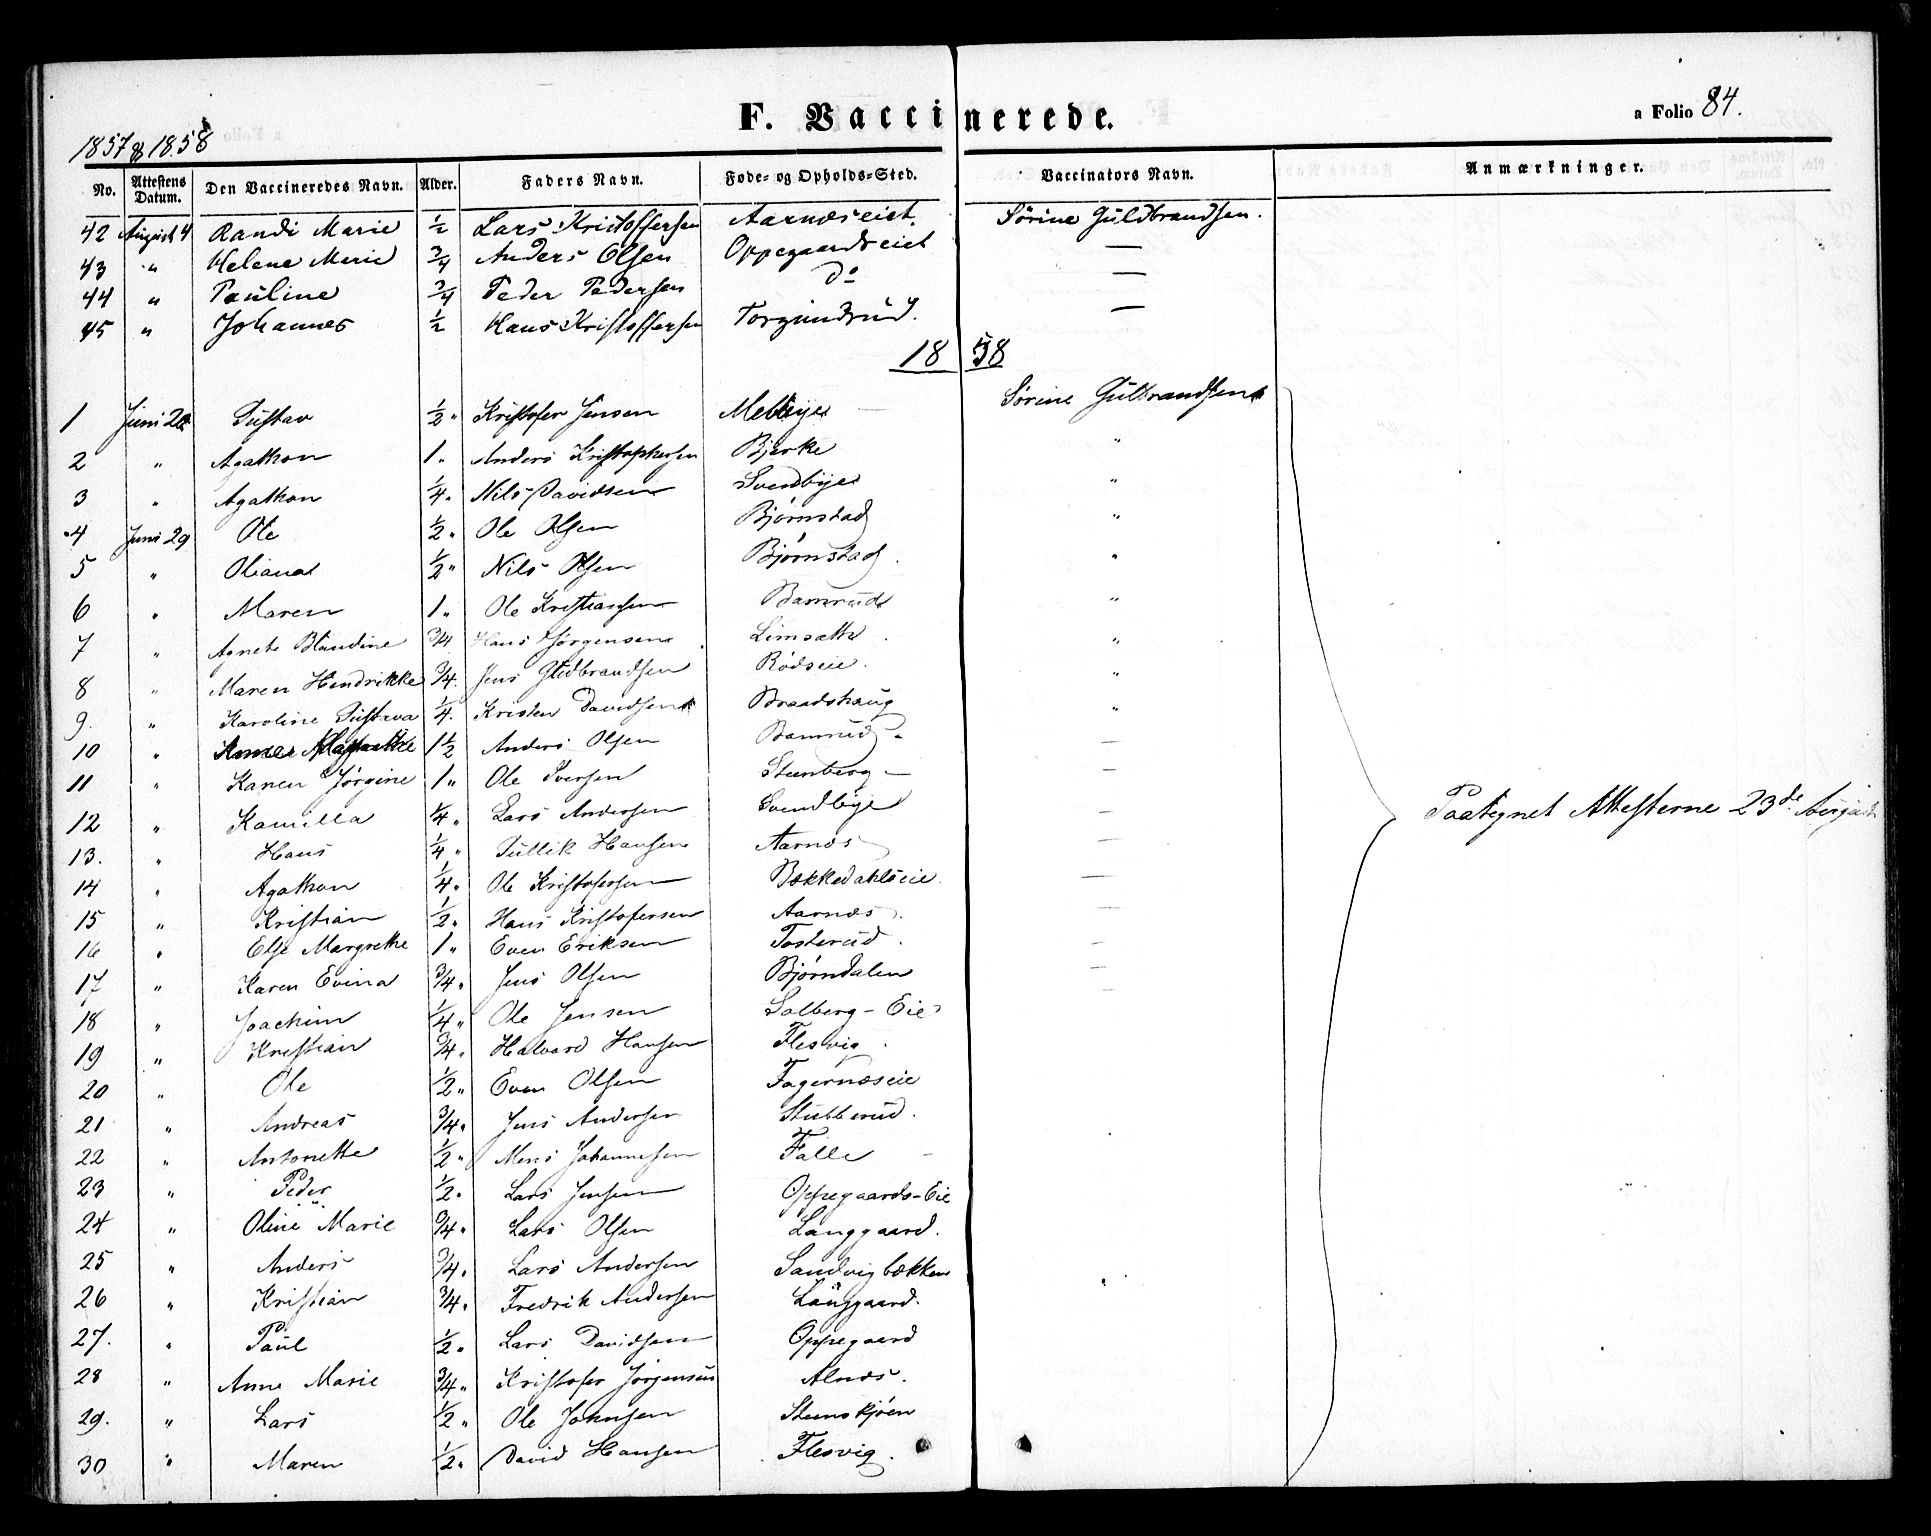 F. Vaccinerede.
a Folio 84.
1857 & 1858
No. Attestens Datum. Den Vaccineredes Navn. Alder. Faders Navn. Føde- og Opholds-Sted. Vaccinators Navn. Anmærkninger.
42 August 4 Randi Marie 1/2 Lars Kristoffersen Aarnæseiet. Sörine Guldbrandsen.
43 " Helene Marie 3/4 Anders Olsen Oppegaardseiet —
44 " Pauline 3/4 Peder Pedersen do —
45 " Johannes 1/2 Hans Kristoffersen Torgundrud. —
1858
1 Juni 28 Gustav 1/2 " Kristofer Jensen Mellbye Sörine Gulbrandsen
2 " Agathon 1 " Anders Kristophersen Bjerke "
3 " Agathon 1/4 " Nils Davidsen Svendbye "
4 Juni 29 Ole 1/2 " Ole Olsen Bjørnstad "
5 " Oliana 1/2 " Nils Olsen Bjørnstad "
6 " Maren 1 " Ole Kristiansen Bamrud "
7 " Agnete Blandine 3/4 Hans Jørgensen "
8 " Maren Hendrikke 3/4 Jens Guldbrandsen Rødseie. "
9. " Karoline Gustava 1/4 Kristen Davidsen Brandshaug "
10 " Anne 1 1/2 Anders Olsen Bamrud —
11 " Karen Jørgine 1 " Ole Iversen Stenberg —
12 " Kamilla 1/4 " Lars Andersen Svendbye —
13. " Hans 1/4 " Gullik Hansen Aarnæs —
14 " Agathon 1/4 " Ole Kristofersen Bækkedahlseie —
15 " Kristian 1/2 " Hans Kristofersen Aarnæs —
16 " Else Margrethe 1 " Even Eriksen Tosterud. —
17 " Karen Evina 3/4 " Jens Olsen Bjørndalen —
18 " Joachim 1/4 " Ole Jensen Solberg-Eie
19 " Kristian 3/4 " Halvard Hansen Flesvig
20 " Ole 1/2 " Even Olsen Fagernæseie
21 " Andreas 3/4 " Jens Andersen Stubberud.
22 " Antonette 1/2 " Mons Johannesen Falle
23 " Peder 1/2 " Lars Jensen Oppegaards-Eie
24 " Oline Marie 3/4 " Lars Olsen Langgaard.
25 " Anders 3/4 " Lars Andersen Sandvigbækken
26 " Kristian 3/4 " Fredrik Andersen Langgaard.
27. " Paul 1/2 " Lars Davidsen Oppegaard
28 " Anne Marie 3/4 " Kristofer Jørgensen Alnæs.
29. " Lars 1/2 " Ole Johnsen
30 " Maren 1/2 " David Hansen Flesvig.
Paategnet Attesterne 23de August